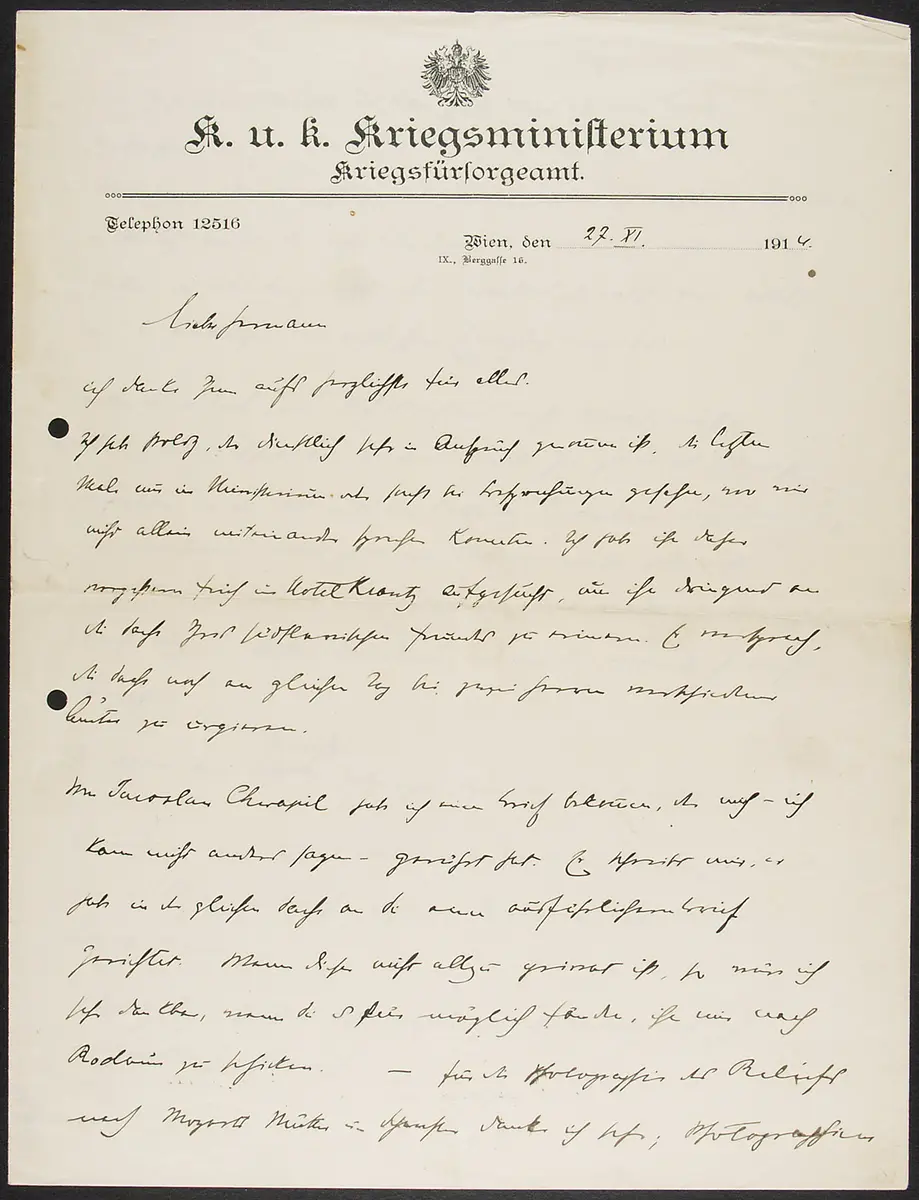 K. u. k. Kriegsministerium
Kriegsfürsorgeamt.
Telephon 12516
Wien, den 27. XI. 1914.
IX., Berggasse 16.
Lieber Hermann
ich danke Ihnen aufs herzlichste für alles.
Ich habe, der dienstlich sehr in Anspruch genommen ist, die letzten
Male nur im Ministerium oder sonst bei Besprechungen gesehen, wo wir
nicht allein miteinander sprechen konnten. Ich habe ihn daher
vorgestern früh im Hotel Krantz aufgesucht, um ihn dringend an
die Sache Ihres südslawischen Freundes zu erinnern. Er versprach,
die Sache noch am gleichen Tag bei zwei Herren verschiedener
Ämter zu urgieren.
Von Jaroslav Chvapil habe ich einen Brief bekommen, der mich – ich
kann nicht anders sagen – gerührt hat. Er schreibt mir, er
habe in der gleichen Sache an Sie einen ausführlichen Brief
gerichtet. Wenn dieser nicht allzu privat ist, so wäre ich
sehr dankbar, wenn Sie es für möglich fänden, ihn mir nach
Rodaun zu schicken. — Für die Photographie des Reliefs
nach Mozarts danke ich sehr; Photographien